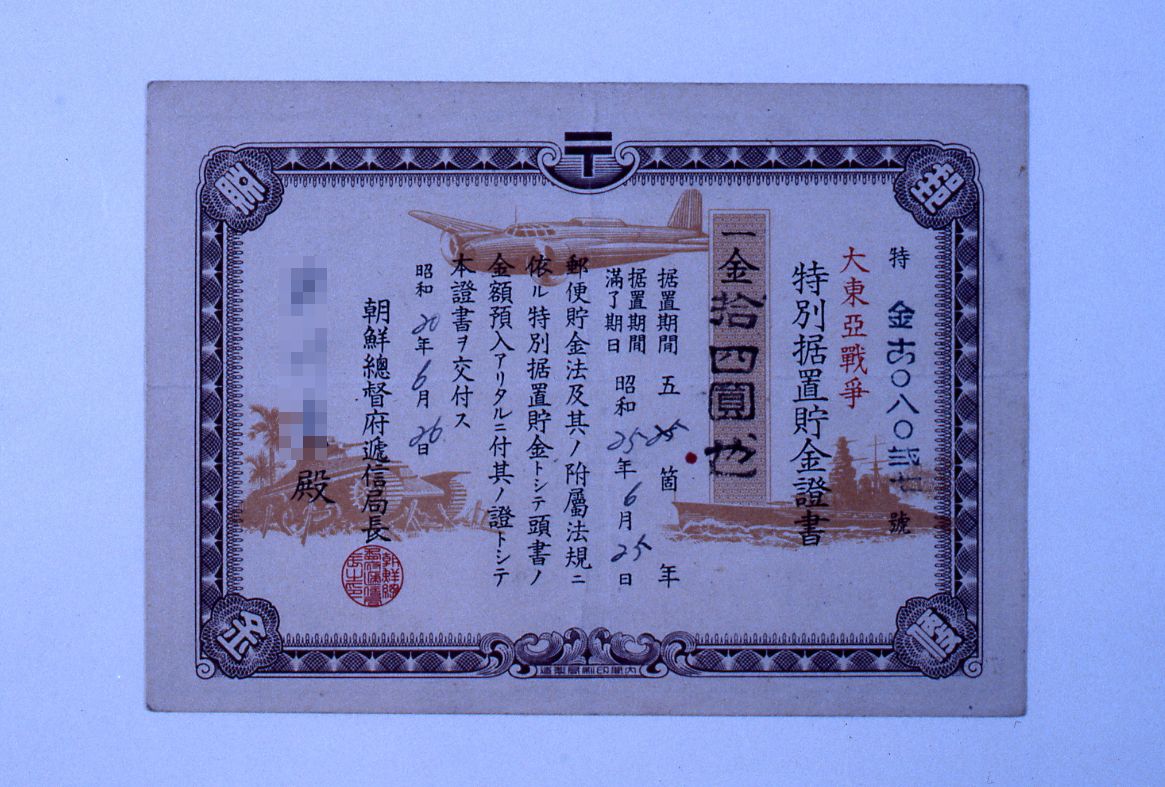 特 金 古〇八〇弐七 號
大東亞戰爭
特別据置貯金證書
一金拾四圓也
据置期間 五 箇年
据置期間
滿了期日 昭和25年6月25日
郵便貯金法及其ノ附屬法規ニ
依ル特別据置貯金トシテ頭書ノ
金額預入アリタルニ付其ノ證トシテ
本證書ヲ交付ス
昭和20年6月26日
朝鮮總督府遞信局長
殿
〒
内閣印刷局製造